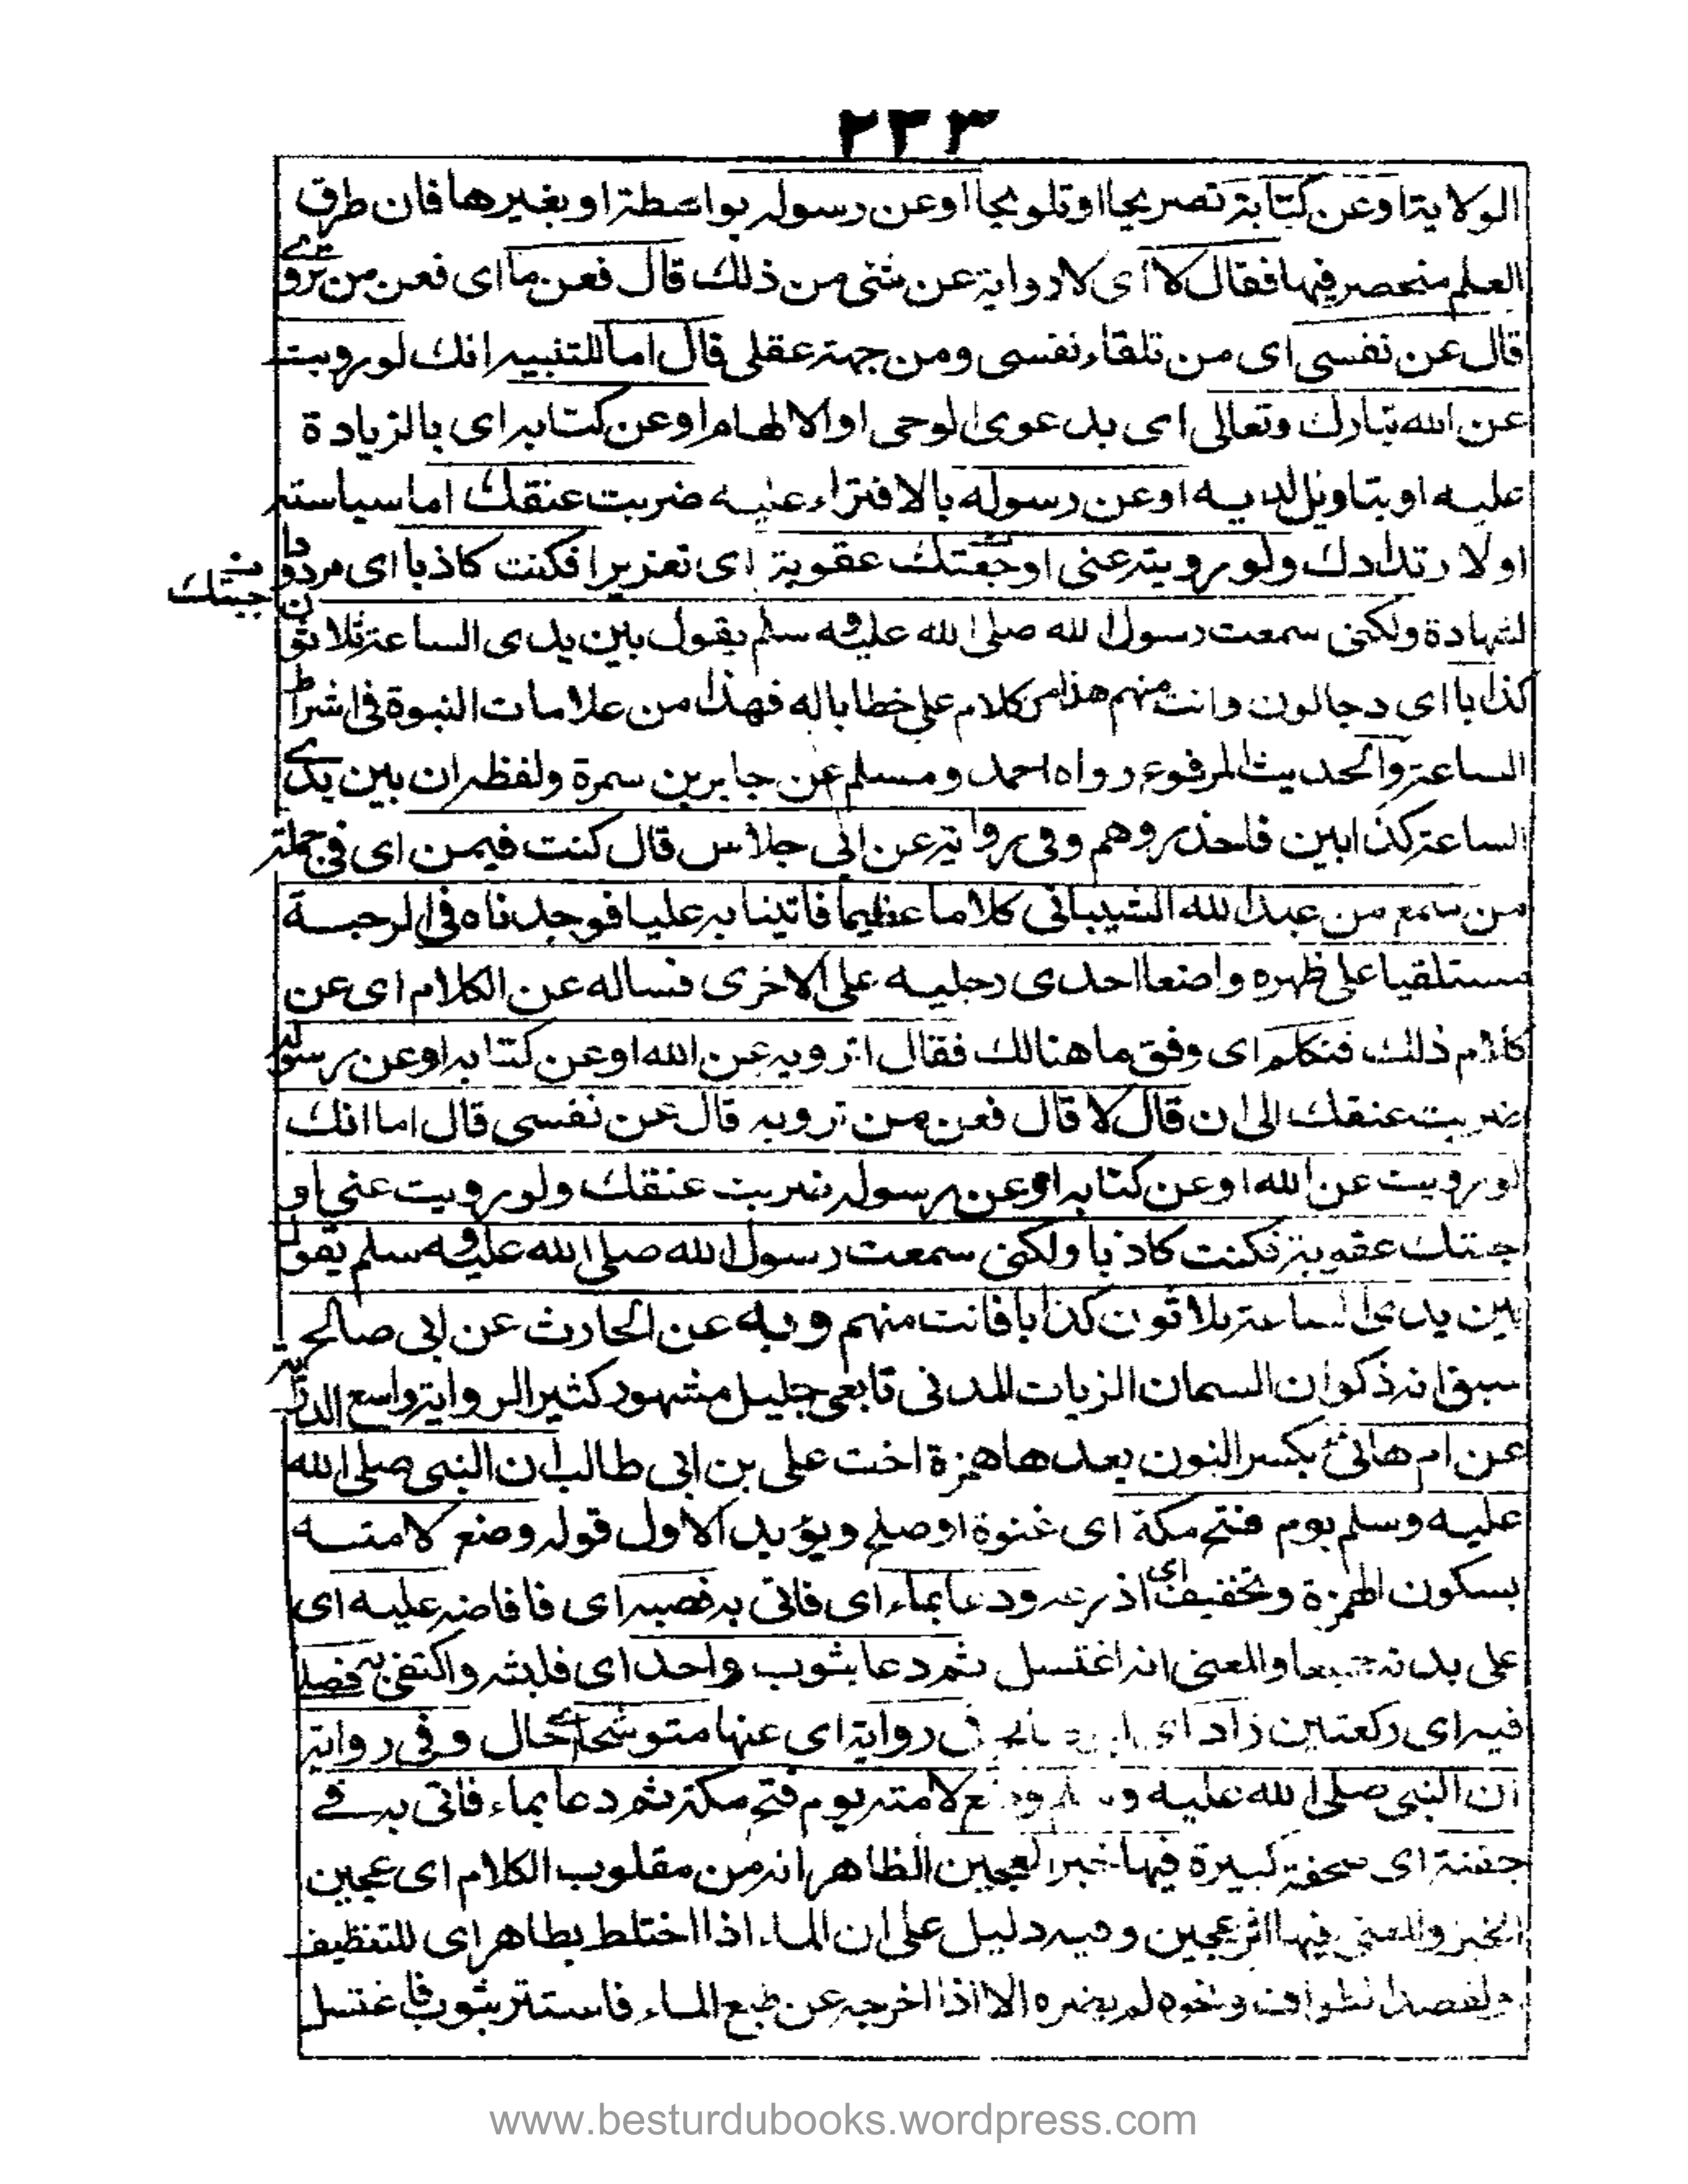 ٢٣٣
الولاية او عن كتابة تصريحا او تلويحا او عن رسوله بواسطة او بغيرها فان طرق
العلم منحصر فيها فقال لا اى لا رواية عن شئ من ذلك قال فعن ما اى فعن من تروى
قال عن نفسى اى من تلقاء نفسى ومن جهة عقلى قال اما للتنبيه انك لو رويت
عن الله تبارك وتعالى اى بدعوى الوحى او الالهام او عن كتابه اى بالزيادة
عليه او بتاويل لديه او عن رسوله بالافتراء عليه ضربت عنقك اما سياسته
او لارتدادك ولو رويته عنى اوجعتك عقوبة اى تعزيرا فكنت كاذبا اى مردود
ن جيتك
لشهادة ولكنى سمعت رسول الله صلى الله عليه وسلم يقول بين يدى الساعة ثلاثون
كذابا اى دجالون وانت منهم هذا من كلام على خطابا له فهذا من علامات النبوة فى اشراط
الساعة والحديث المرفوع رواه احمد ومسلم عن جابر بن سمرة ولفظه ان بين يدى
الساعة كذابين فاحذروهم وفى رواية عن ابى جلاس قال كنت فيمن اى فى جملة
من سمع من عبد الله الشيبانى كلاما عظيما فاتينا به عليا فوجدناه فى الرحبة
مستلقيا على ظهره واضعا احدى رجليه على الاخرى فساله عن الكلام اى عن
كلام ذلك فتكلم اى وفق ما هنالك فقال اترويه عن الله او عن كتابه او عن رسوله
ضربت عنقك الى ان قال لا قال فعن من ترويه قال عن نفسى قال اما انك
لو رويت عن الله او عن كتابه او عن رسوله ضربت عنقك ولو رويت عنى او
جتتك عقوبة فكنت كاذبا ولكنى سمعت رسول الله صلى الله عليه وسلم يقول
بين يدى الساعة ثلاثون كذابا فانت منهم وبه عن الحارث عن ابى صالح
سبق انه ذكوان السمان الزيات المدنى تابعى جليل مشهور كثير الرواية واسع
عن ام هانئ بكسر النون بعدها همزة اخت على بن ابى طالب ان النبى صلى الله
عليه وسلم يوم فتح مكة اى عنوة او صلح ويؤيد الاول قوله وضع لامته
بسكون الهمزة وتخفيف اى اذرعه ودعا بماء اى فاتى به فصبه اى فافاضه عليه اى
على بدنه جميعا والمعنى انه اغتسل ثم دعا بثوب واحد اى فلبسه واكتفى به فصلى
فيه اى ركعتين زاد اى رواية اى عنها متوشحا اى حال وفى رواية
ان النبى صلى الله عليه وسلم وضع لامته يوم فتح مكة ثم دعا بماء فاتى به فے
جفنة اى صحفة كبيرة فيها خبز العجين الظاهر انه من مقلوب الكلام اى عجين
الخبز والمعنى فيها اثر عجين وفيه دليل على ان الماء اذا اختلط بطاهر اى للتنظيف
لم يضره الا اذا اخرجه عن طبع الماء فاستتر بثوب فاغتسل
www.besturdubooks.wordpress.com